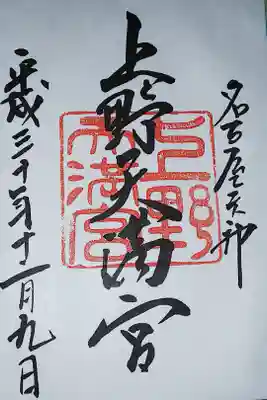 名古屋天神
上野天満宮
上野天満宮
平成三十年十一月九日